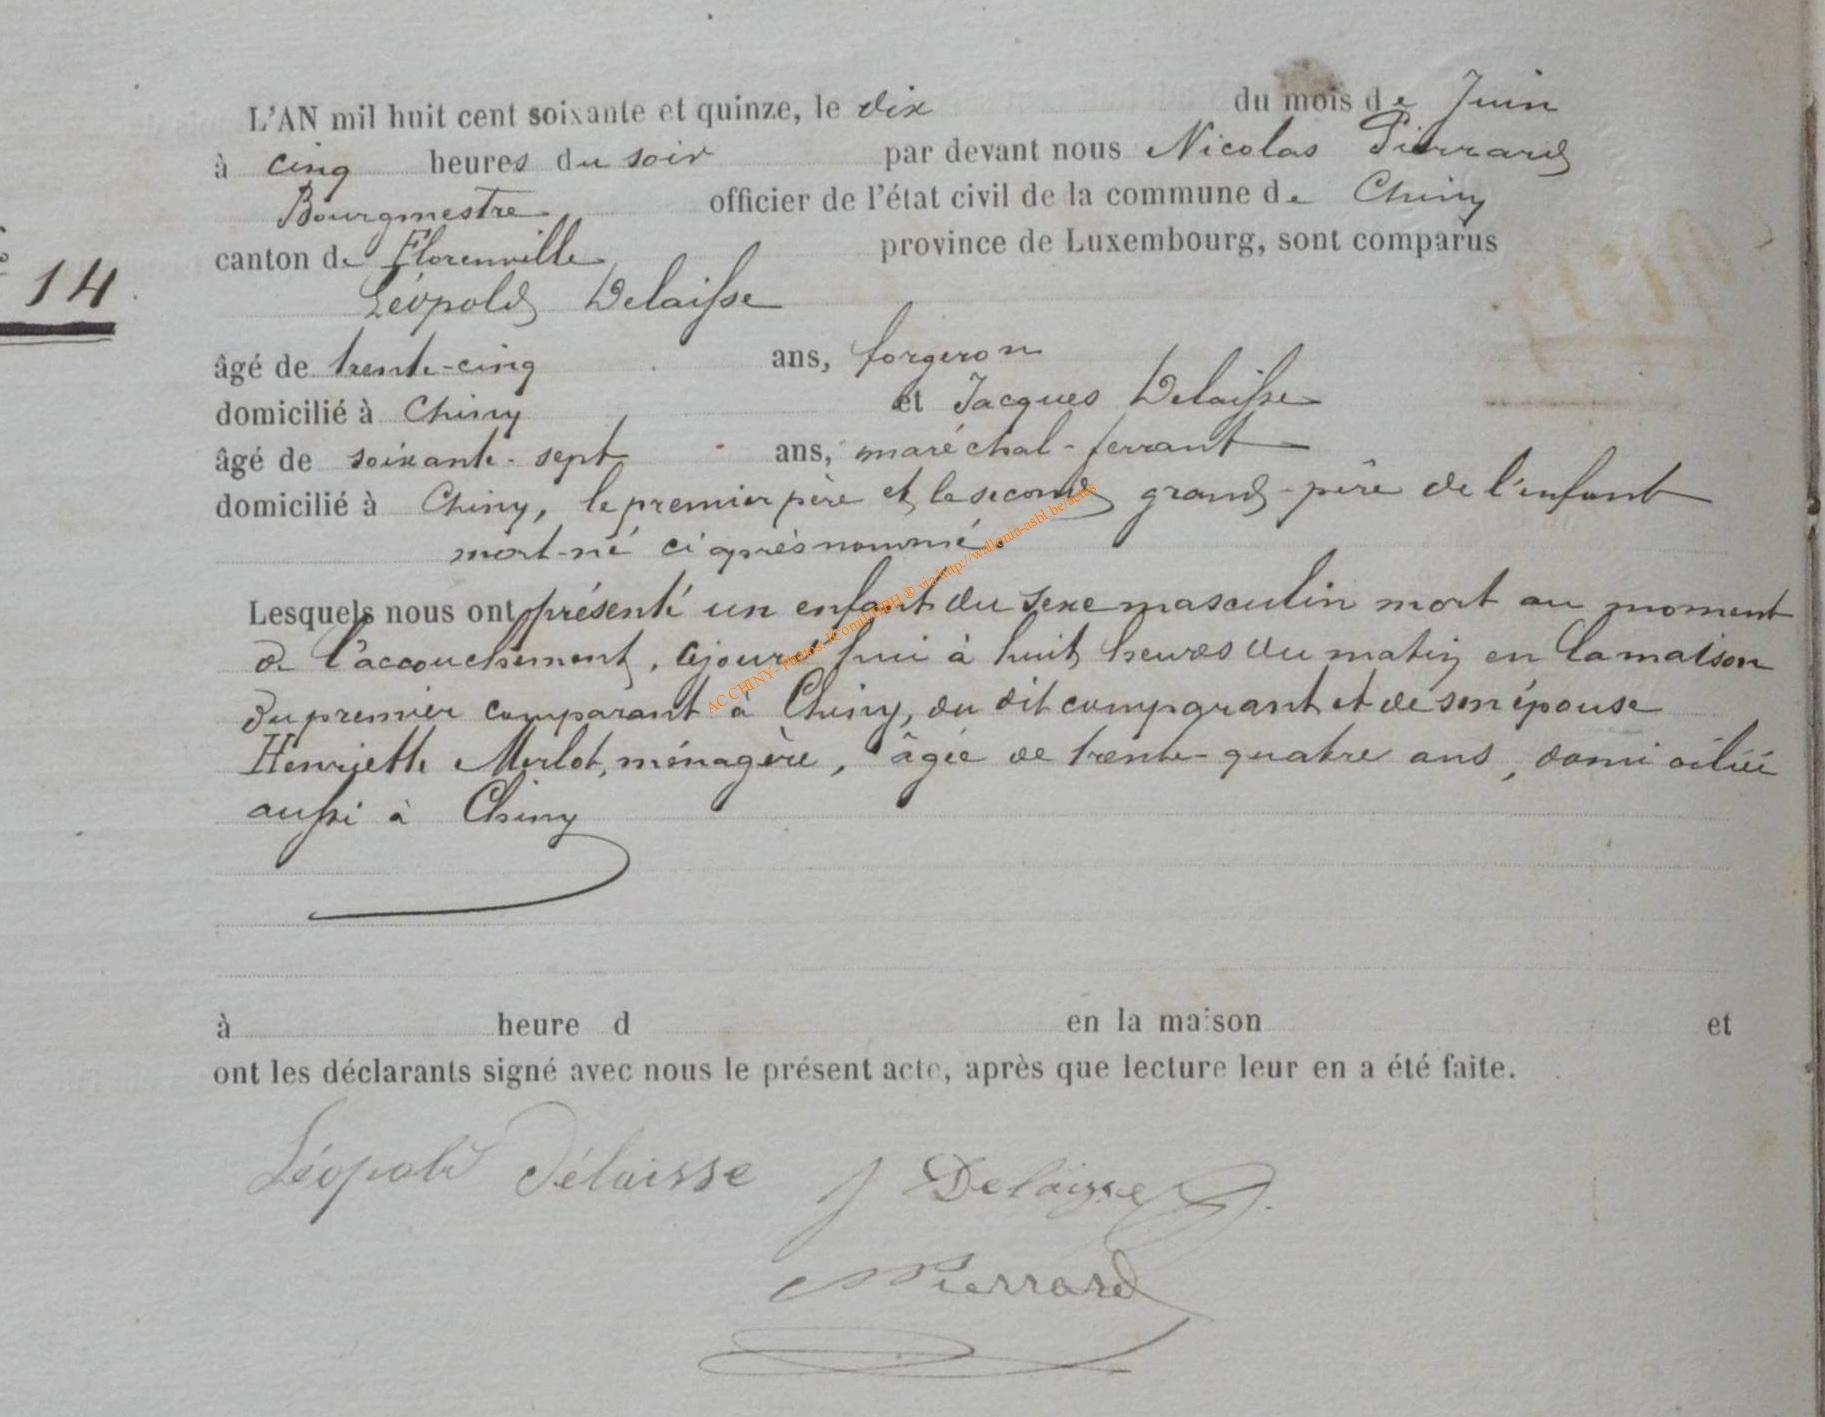 L'AN mil huit cent soixante et quinze, le dix du mois de Juin
à cinq heures du soir par devant nous Nicolas Pierrard
Bourgmestre officier de l'état civil de la commune de Chiny
canton de Florenville province de Luxembourg, sont comparus
N° 14
Léopold Delaisse
âgé de trente-cinq ans, forgeron
domicilié à Chiny et Jacques Delaisse
âgé de soixante-sept ans, maréchal-ferrant
domicilié à Chiny, le premier père et le second grand-père de l'enfant
mort-né ci après nommé.
Lesquels nous ont présenté un enfant du sexe masculin mort au moment
de l'accouchement, ajourd'hui à huit heures du matin en la maison
du premier comparant à Chiny, du dit comparant et de son épouse
Henriette Merlot, ménagère, âgée de trente-quatre ans, domiciliée
aussi à Chiny
à heure d en la maison et
ont les déclarants signé avec nous le présent acte, après que lecture leur en a été faite.
Léopold Délaisse J Delaisse
NPierrard